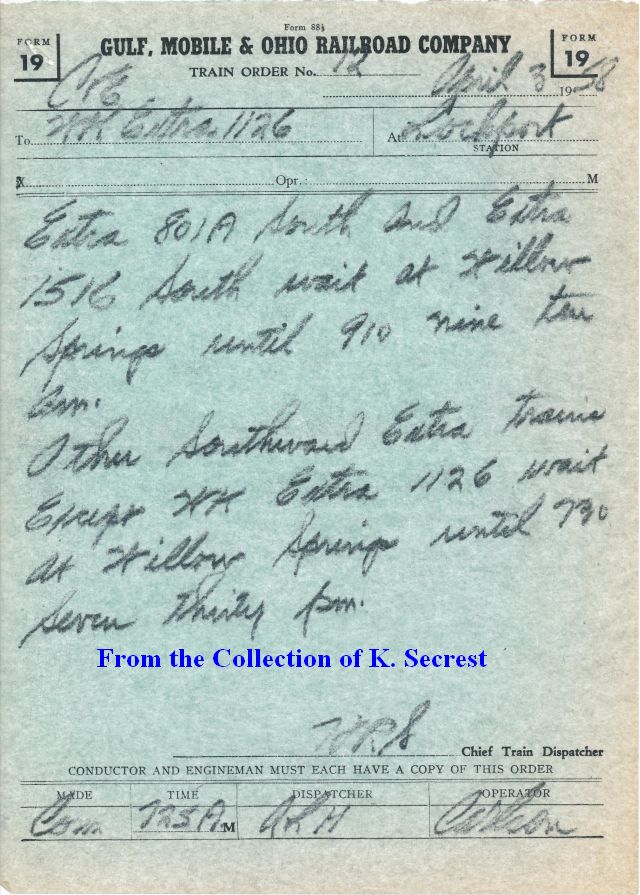 Form 88½
FORM 19
GULF, MOBILE & OHIO RAILROAD COMPANY
FORM 19
TRAIN ORDER No. 12
April 3 1958
C&E
To WK Extra 1126 At Lockport
STATION
X Opr. M
Extra 801A South and Extra
1516 South wait at Willow
Springs until 910 nine ten
am.
Other Southward Extra trains
Except WK Extra 1126 wait
at Willow Springs until 730
seven thirty pm.
From the Collection of K. Secrest
Chief Train Dispatcher
CONDUCTOR AND ENGINEMAN MUST EACH HAVE A COPY OF THIS ORDER
MADE TIME DISPATCHER OPERATOR
Com 725A M Carlson